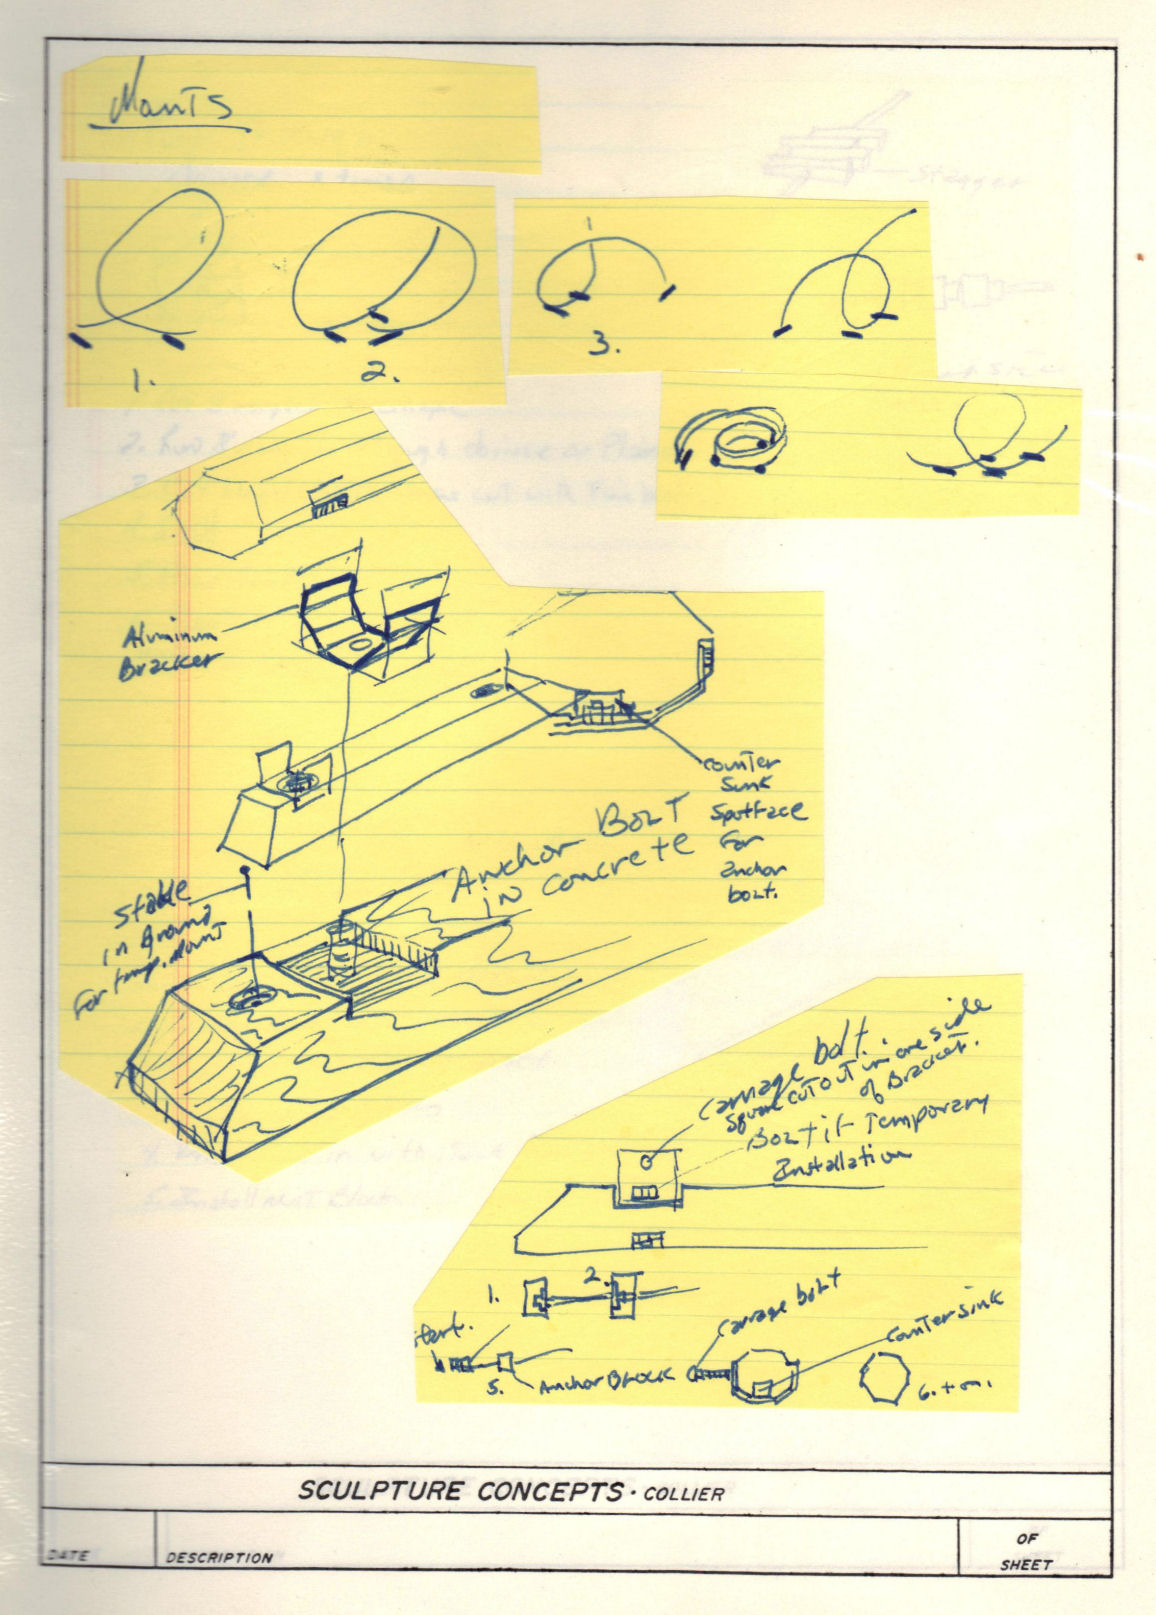 MANTS
1.
2.
3.
Aluminum
Bracker
counter
sink
spotface
For
anchor
bolt.
Anchor BOLT
in concrete
stable
in Ground
For temp. MANT
Carrage bolt
square cut out in one side
of Bracket.
Bolt it Temporary
Installation
1.
2.
start.
5.
Anchor Block
Carrage bolt
counter sink
6.
SCULPTURE CONCEPTS · COLLIER
DATE
DESCRIPTION
OF
SHEET